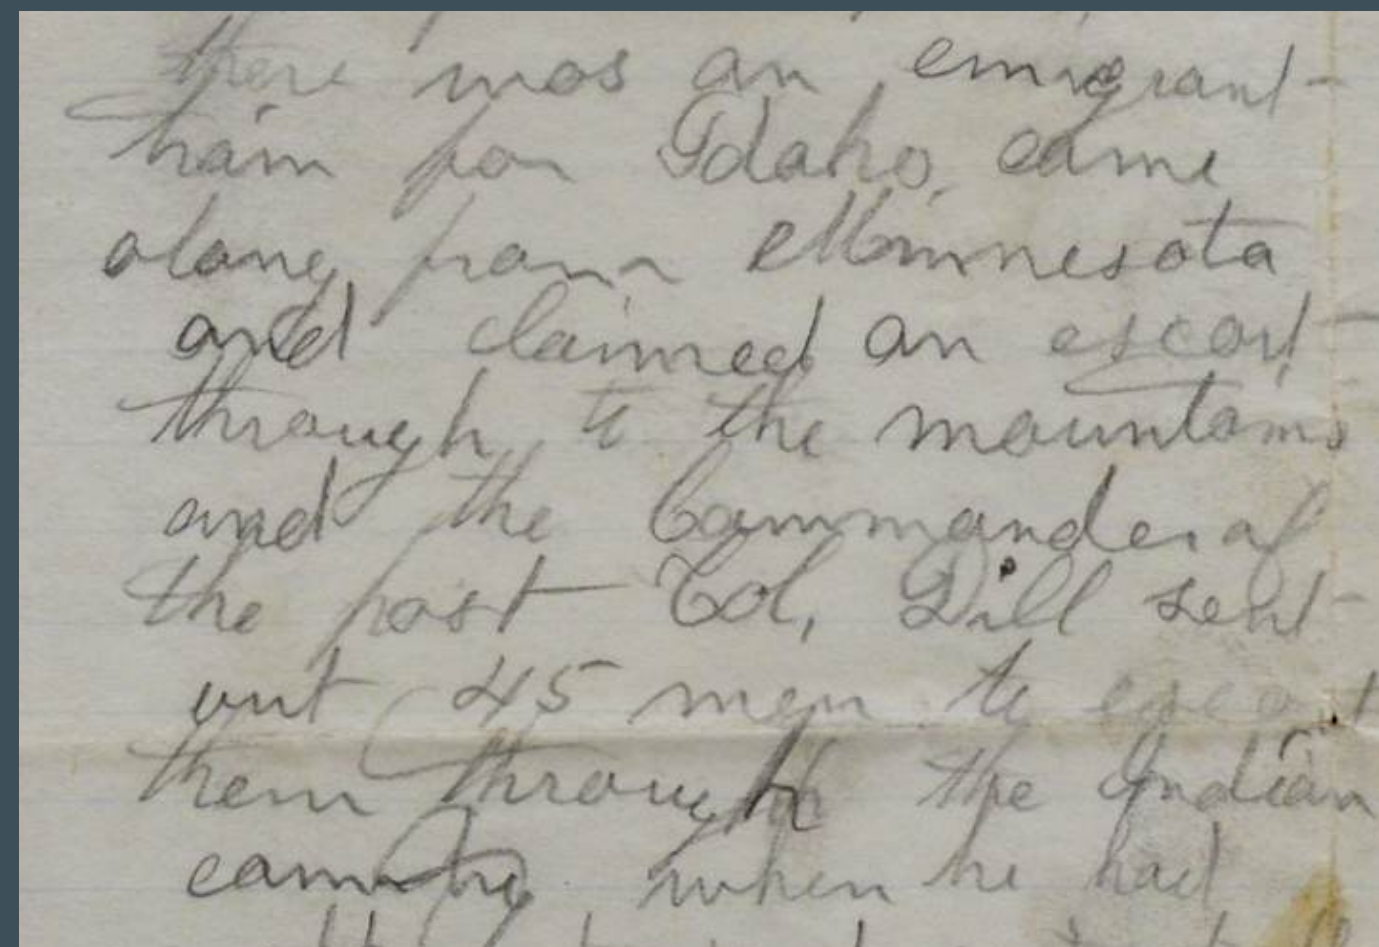 there was an emigrant
train for Idaho, came
along from Minnesota
and claimed an escort
through to the mountains
and the Commander of
the post Col, Dill sent
out 45 men to escort
them through the Indian
country when he had